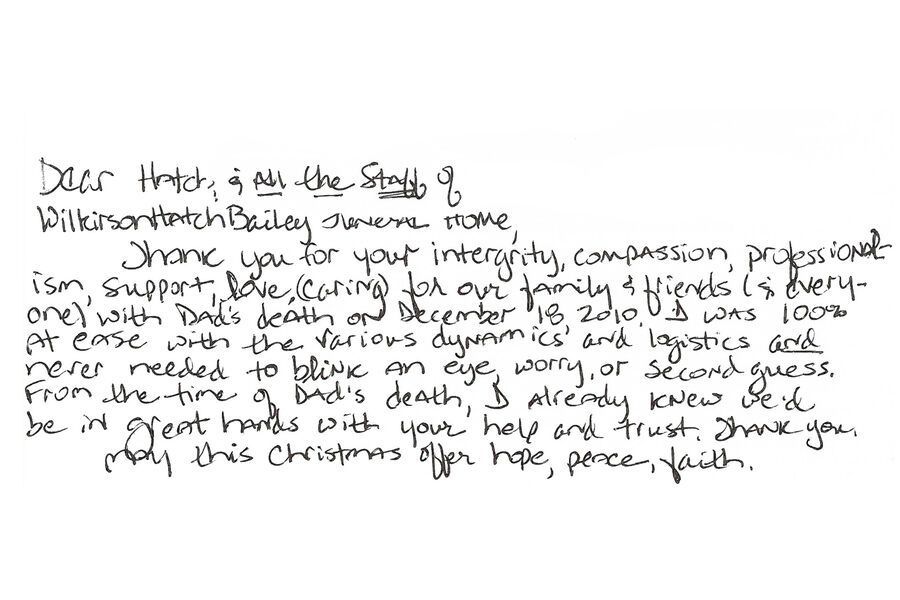 Dear Hatch, & All the Staff of
WilkirsonHatchBailey Funeral Home,
Thank you for your intergrity, compassion, professional-
ism, support, love, (caring) for our family & friends (& every-
one) with Dad's death on December 18 2010. I was 100%
at ease with the various dynamics and logistics and
never needed to blink an eye, worry, or second guess.
From the time of Dad's death, I already knew we'd
be in great hands with your help and trust. Thank you.
May this Christmas offer hope, peace, faith.